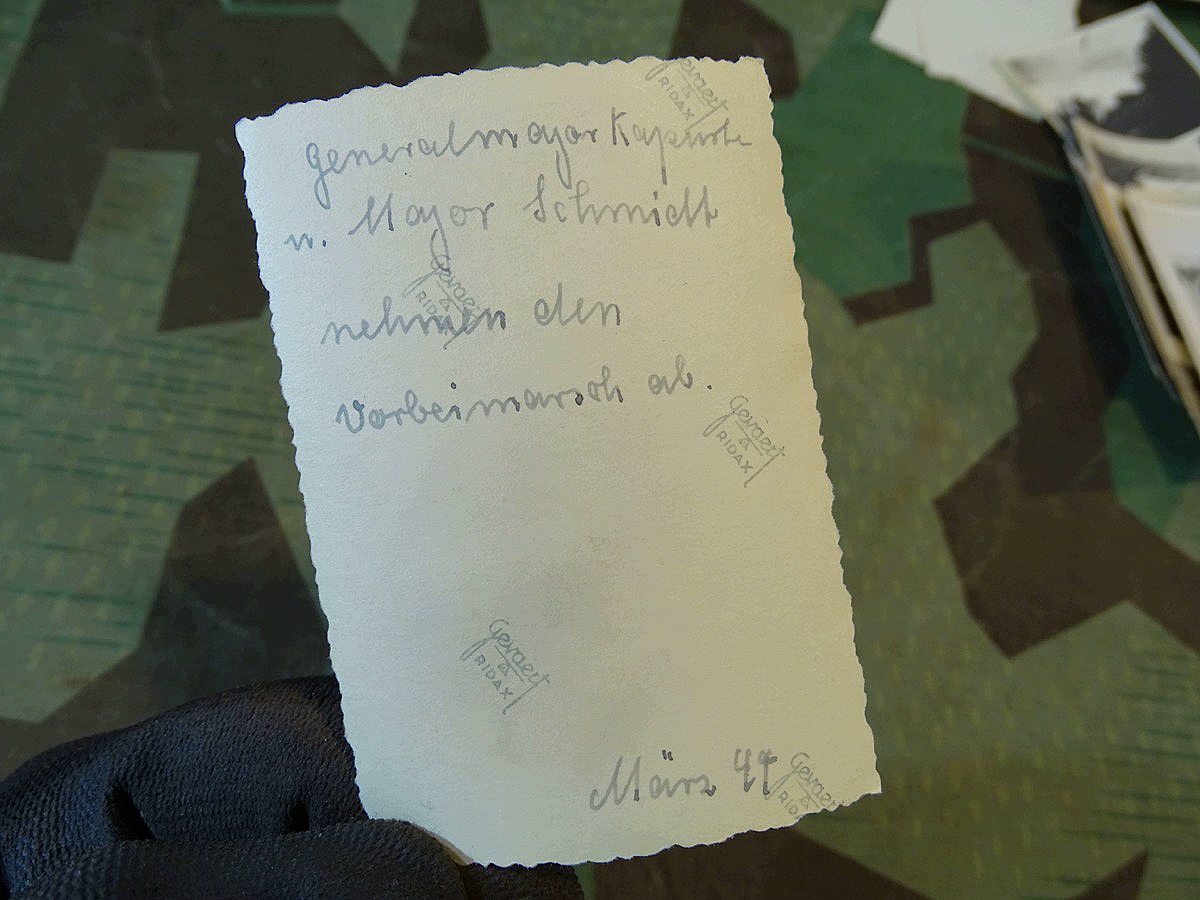 Generalmajor
u. Major Schmidt
nehmen den
Vorbeimarsch ab.
März 44
Gevaert
RIDAX
Gevaert
RIDAX
Gevaert
RIDAX
Gevaert
RIDAX
Gevaert